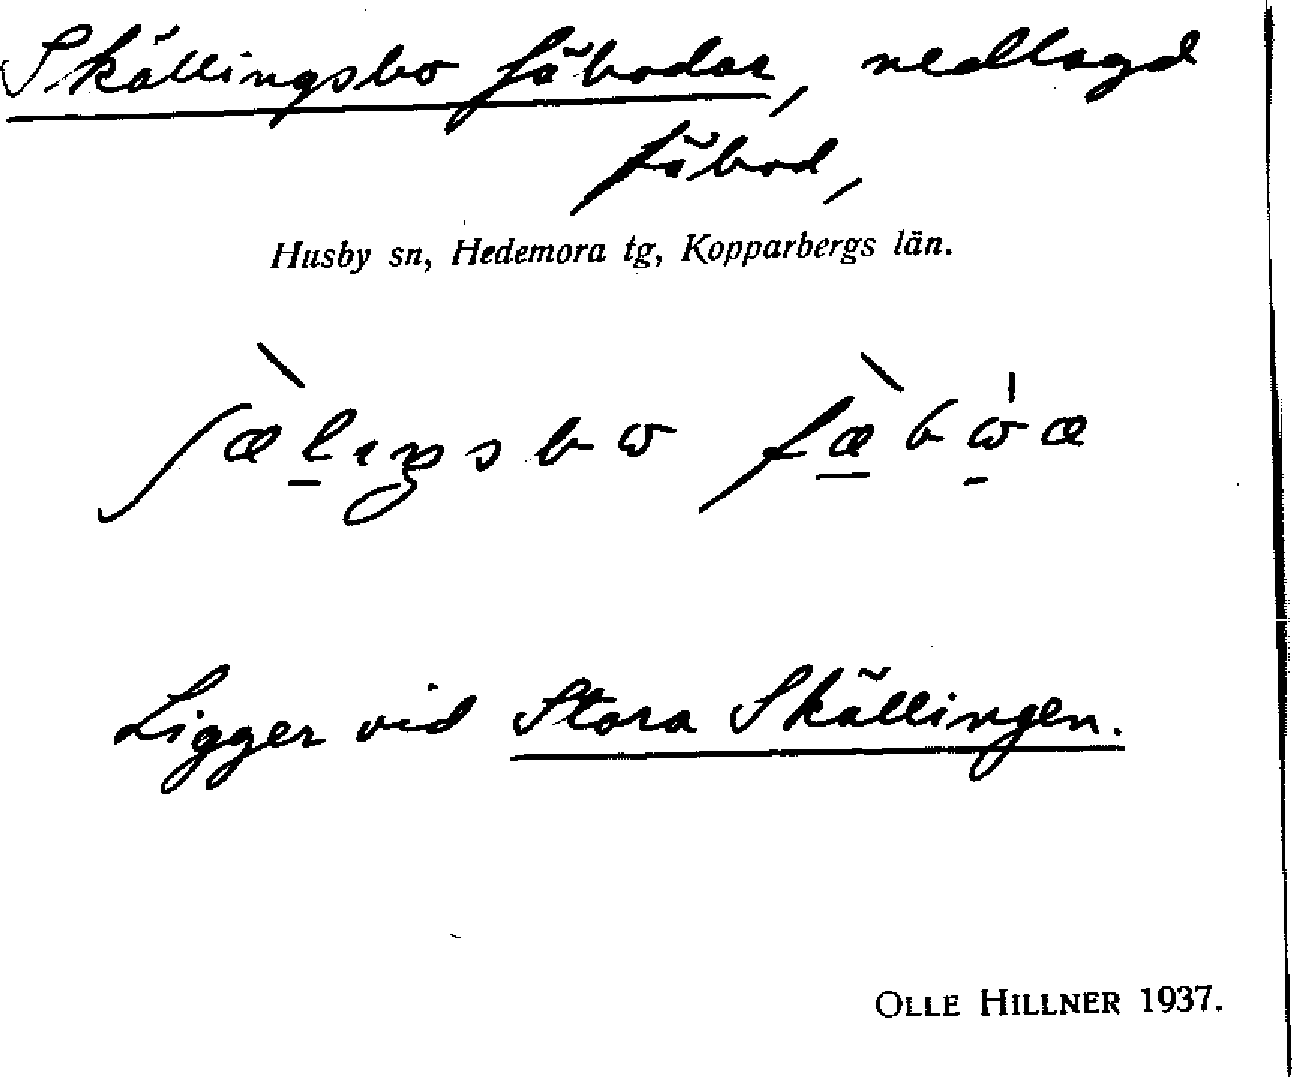 Skällingsbo fäbodar, nedlagd
fäbod,
Husby sn, Hedemora tg, Kopparbergs län.
ʃæ̀l̠ıŋsbɷ fæ̠̀bɷ̠́æ
Ligger vid Stora Skällingen.
OLLE HILLNER 1937.